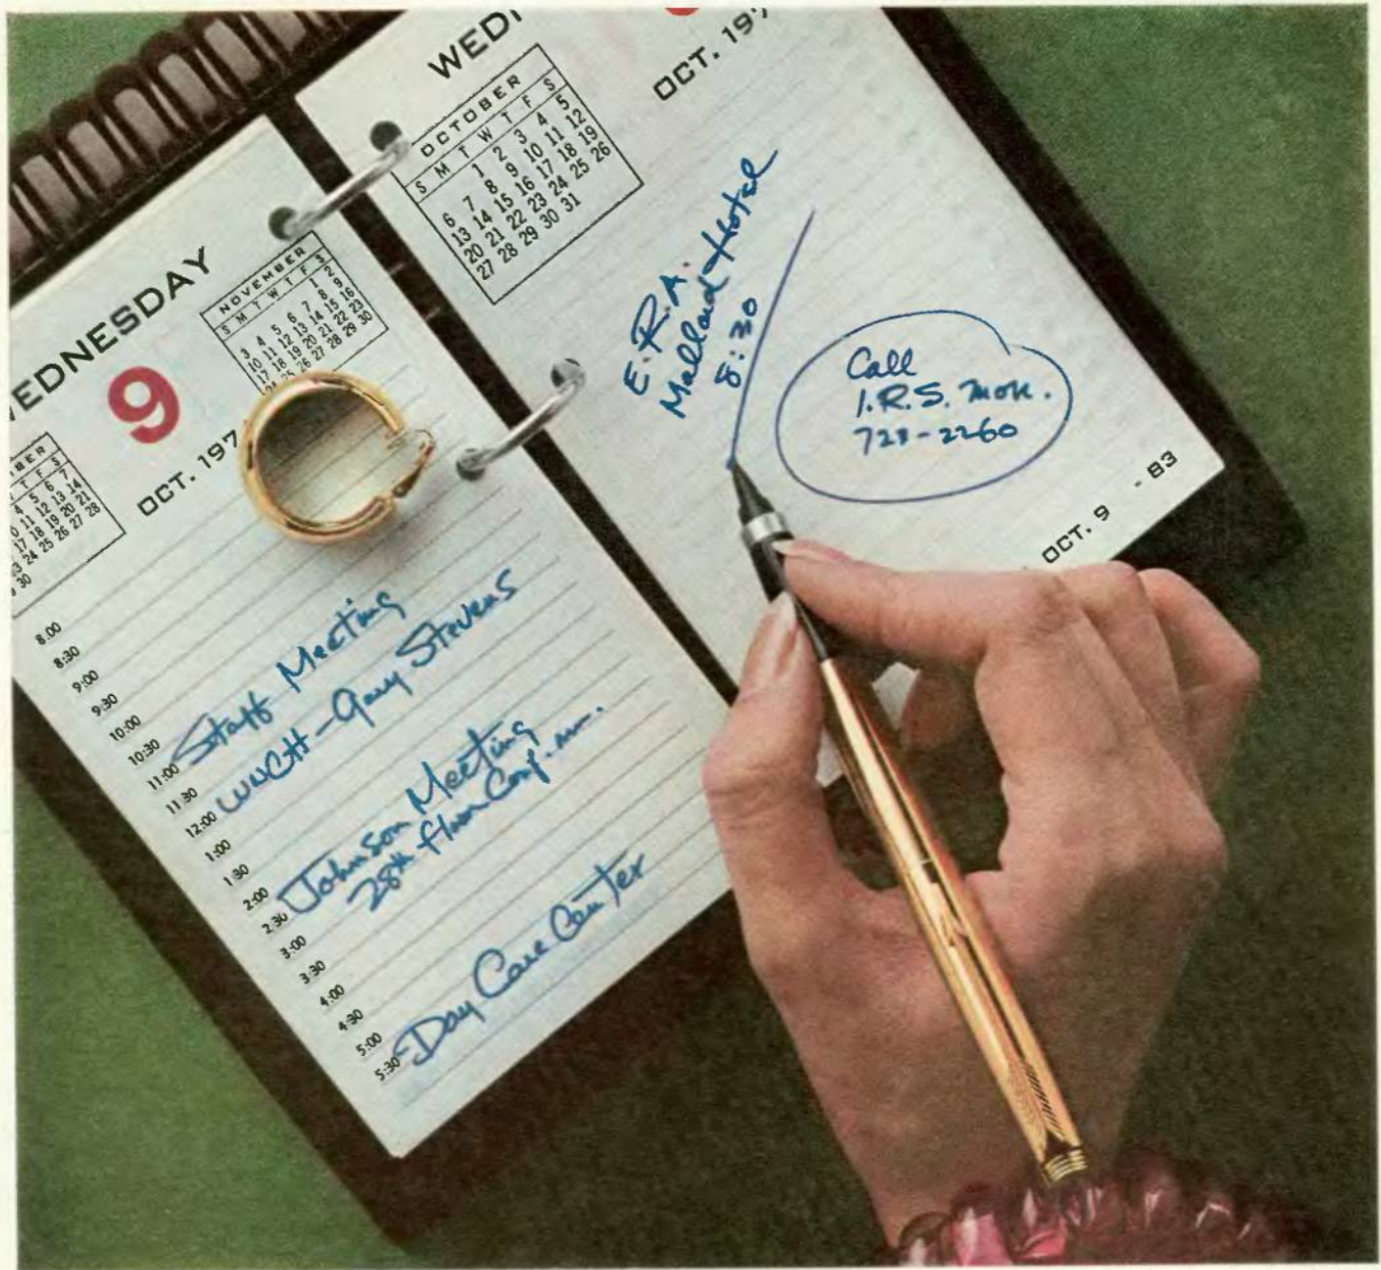 WEDNESDAY
9
OCT. 197
NOVEMBER
S M T W T F S
1 2
3 4 5 6 7 8 9
10 11 12 13 14 15 16
17 18 19 20 21 22 23
25 26 27 28 29 30
BER
T F S
4 5 6 7
11 12 13 14
17 18 19 20 21
23 24 25 26 27 28
30
8:00
8:30
9:00
9:30
10:00
10:30
11:00 Staff Meeting
11:30
12:00 WWCH-Gary Stevens
1:00
1:30
2:00
2:30 Johnson Meeting
3:00 28th floor Conf. rm.
3:30
4:00
4:30
5:00
5:30 -Day Care Center
WEDN
OCT. 197
OCTOBER
S M T W T F S
1 2 3 4 5
6 7 8 9 10 11 12
13 14 15 16 17 18 19
20 21 22 23 24 25 26
27 28 29 30 31
E.R.A.
Mallard Hotel
8:30
Call
I.R.S. Mon.
723-2260
OCT. 9 - 83